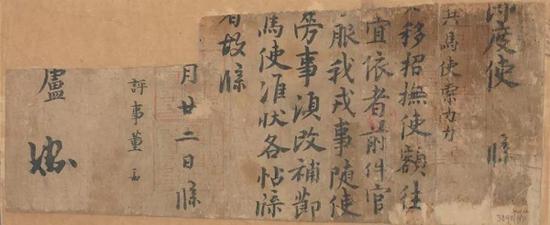 度使 牒
兵馬使索力力
移招撫使額往
宜依者前件官
服我戎事隨使
勞事須改補節
馬使准状各帖牒
者故牒
月廿二日牒
評事董
盧